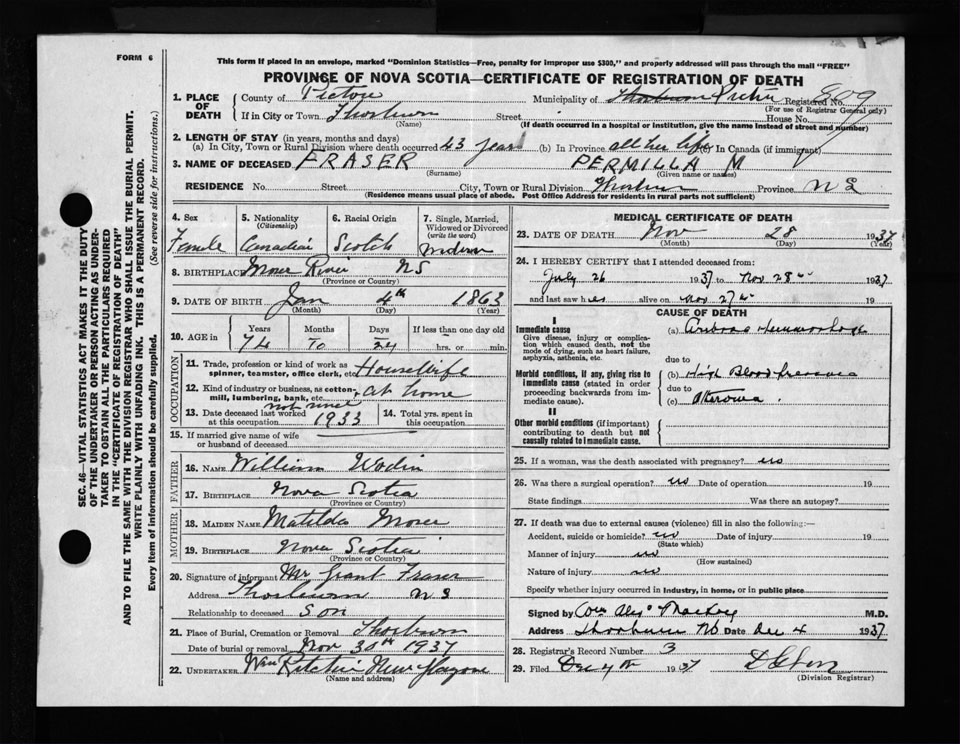 FORM 6
This form if placed in an envelope, marked "Dominion Statistics—Free, penalty for improper use $300," and properly addressed will pass through the mail "FREE"
PROVINCE OF NOVA SCOTIA—CERTIFICATE OF REGISTRATION OF DEATH
1. PLACE OF DEATH County of Pictou Municipality of Pictou Registered No. 809
(For use of Registrar General only)
If in City or Town Thorburn Street House No.
(Name) (If death occurred in a hospital or institution, give the name instead of street and number)
2. LENGTH OF STAY (in years, months and days)
(a) In City, Town or Rural Division where death occurred 43 years (b) In Province all her life (c) In Canada (if immigrant)
3. NAME OF DECEASED FRASER PERMILLA M
(Surname) (Given name or names)
RESIDENCE No. Street City, Town or Rural Division Thorburn Province N S
(Residence means usual place of abode. Post Office Address for residents in rural parts not sufficient)
SEC. 46—VITAL STATISTICS ACT MAKES IT THE DUTY
OF THE UNDERTAKER OR PERSON ACTING AS UNDER-
TAKER TO OBTAIN ALL THE PARTICULARS REQUIRED
IN THE "CERTIFICATE OF REGISTRATION OF DEATH"
AND TO FILE THE SAME WITH THE DIVISION REGISTRAR WHO SHALL ISSUE THE BURIAL PERMIT.
WRITE PLAINLY WITH UNFADING INK. THIS IS A PERMANENT RECORD.
Every item of information should be carefully supplied. (See reverse side for instructions.)
4. Sex Female
5. Nationality (Citizenship) Canadian
6. Racial Origin Scotch
7. Single, Married, Widowed or Divorced (write the word)
8. BIRTHPLACE Moser River NS
(Province or Country)
9. DATE OF BIRTH Jan 4th 1863
(Month) (Day) (Year)
10. AGE in Years Months Days If less than one day old
74 10 24 hrs. or min.
OCCUPATION
11. Trade, profession or kind of work as spinner, teamster, office clerk, etc. HouseWife
12. Kind of industry or business, as cotton-mill, lumbering, bank, etc. at home
13. Date deceased last worked at this occupation not since 1933
14. Total yrs. spent in this occupation
15. If married give name of wife or husband of deceased
FATHER
16. NAME William
17. BIRTHPLACE Nova Scotia
MOTHER
18. MAIDEN NAME Matilda Moser
19. BIRTHPLACE Nova Scotia
(Province or Country)
20. Signature of informant Mr Grant Fraser
Address Thorburn N S
Relationship to deceased Son
21. Place of Burial, Cremation or Removal Thorburn
Date of burial or removal Nov 30th 1937
22. UNDERTAKER Wm Ritchie New Glasgow
(Name and address)
MEDICAL CERTIFICATE OF DEATH
23. DATE OF DEATH Nov 28 1937
(Month) (Day) (Year)
24. I HEREBY CERTIFY that I attended deceased from:
July 26 1937 to Nov 28 1937
and last saw her alive on Nov 27 19
CAUSE OF DEATH
I
Immediate cause
Give disease, injury or complication which caused death, not the mode of dying, such as heart failure, asphyxia, asthenia, etc.
(a) Hemmorhage
due to
Morbid conditions, if any, giving rise to immediate cause (stated in order proceeding backwards from immediate cause).
(b) High Blood Pressure
due to
(c)
II
Other morbid conditions (if important) contributing to death but not causally related to immediate cause.
25. If a woman, was the death associated with pregnancy? no
26. Was there a surgical operation? no Date of operation 19
State findings Was there an autopsy?
27. If death was due to external causes (violence) fill in also the following:—
Accident, suicide or homicide? no Date of injury 19
(State which)
Manner of injury no
(How sustained)
Nature of injury no
Specify whether injury occurred in industry, in home, or in public place
Signed by Mackay M.D.
Address Thorburn NS Date Dec 4 1937
28. Registrar's Record Number 3
29. Filed Dec 4th 1937
(Division Registrar)